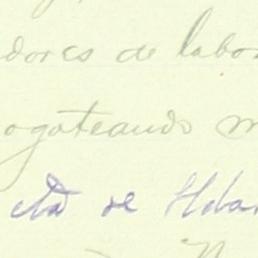 dores de labor
ogoteando m
cta de Haba